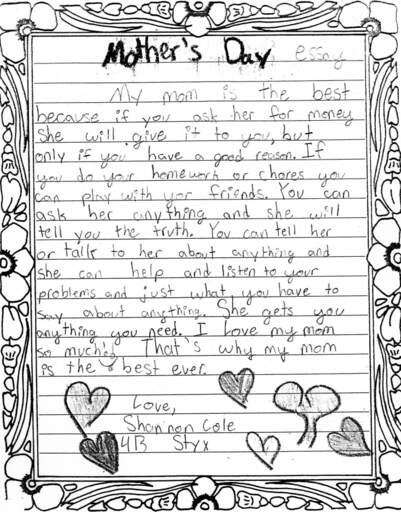 Mother's Day essay
My mom is the best
because if you ask her for money
She will give it to you, but
only if you have a good reason. If
you do your homework or chores you
can play with yor friends. You can
ask her anything and she will
tell you the truth. You can tell her
or talk to her about anything and
she can help and listen to your
problems and just what you have to
say about anything. She gets you
anything you need. I love my mom
so much That's why my mom
is the best ever.
Love,
Shannon Cole
4B Styx